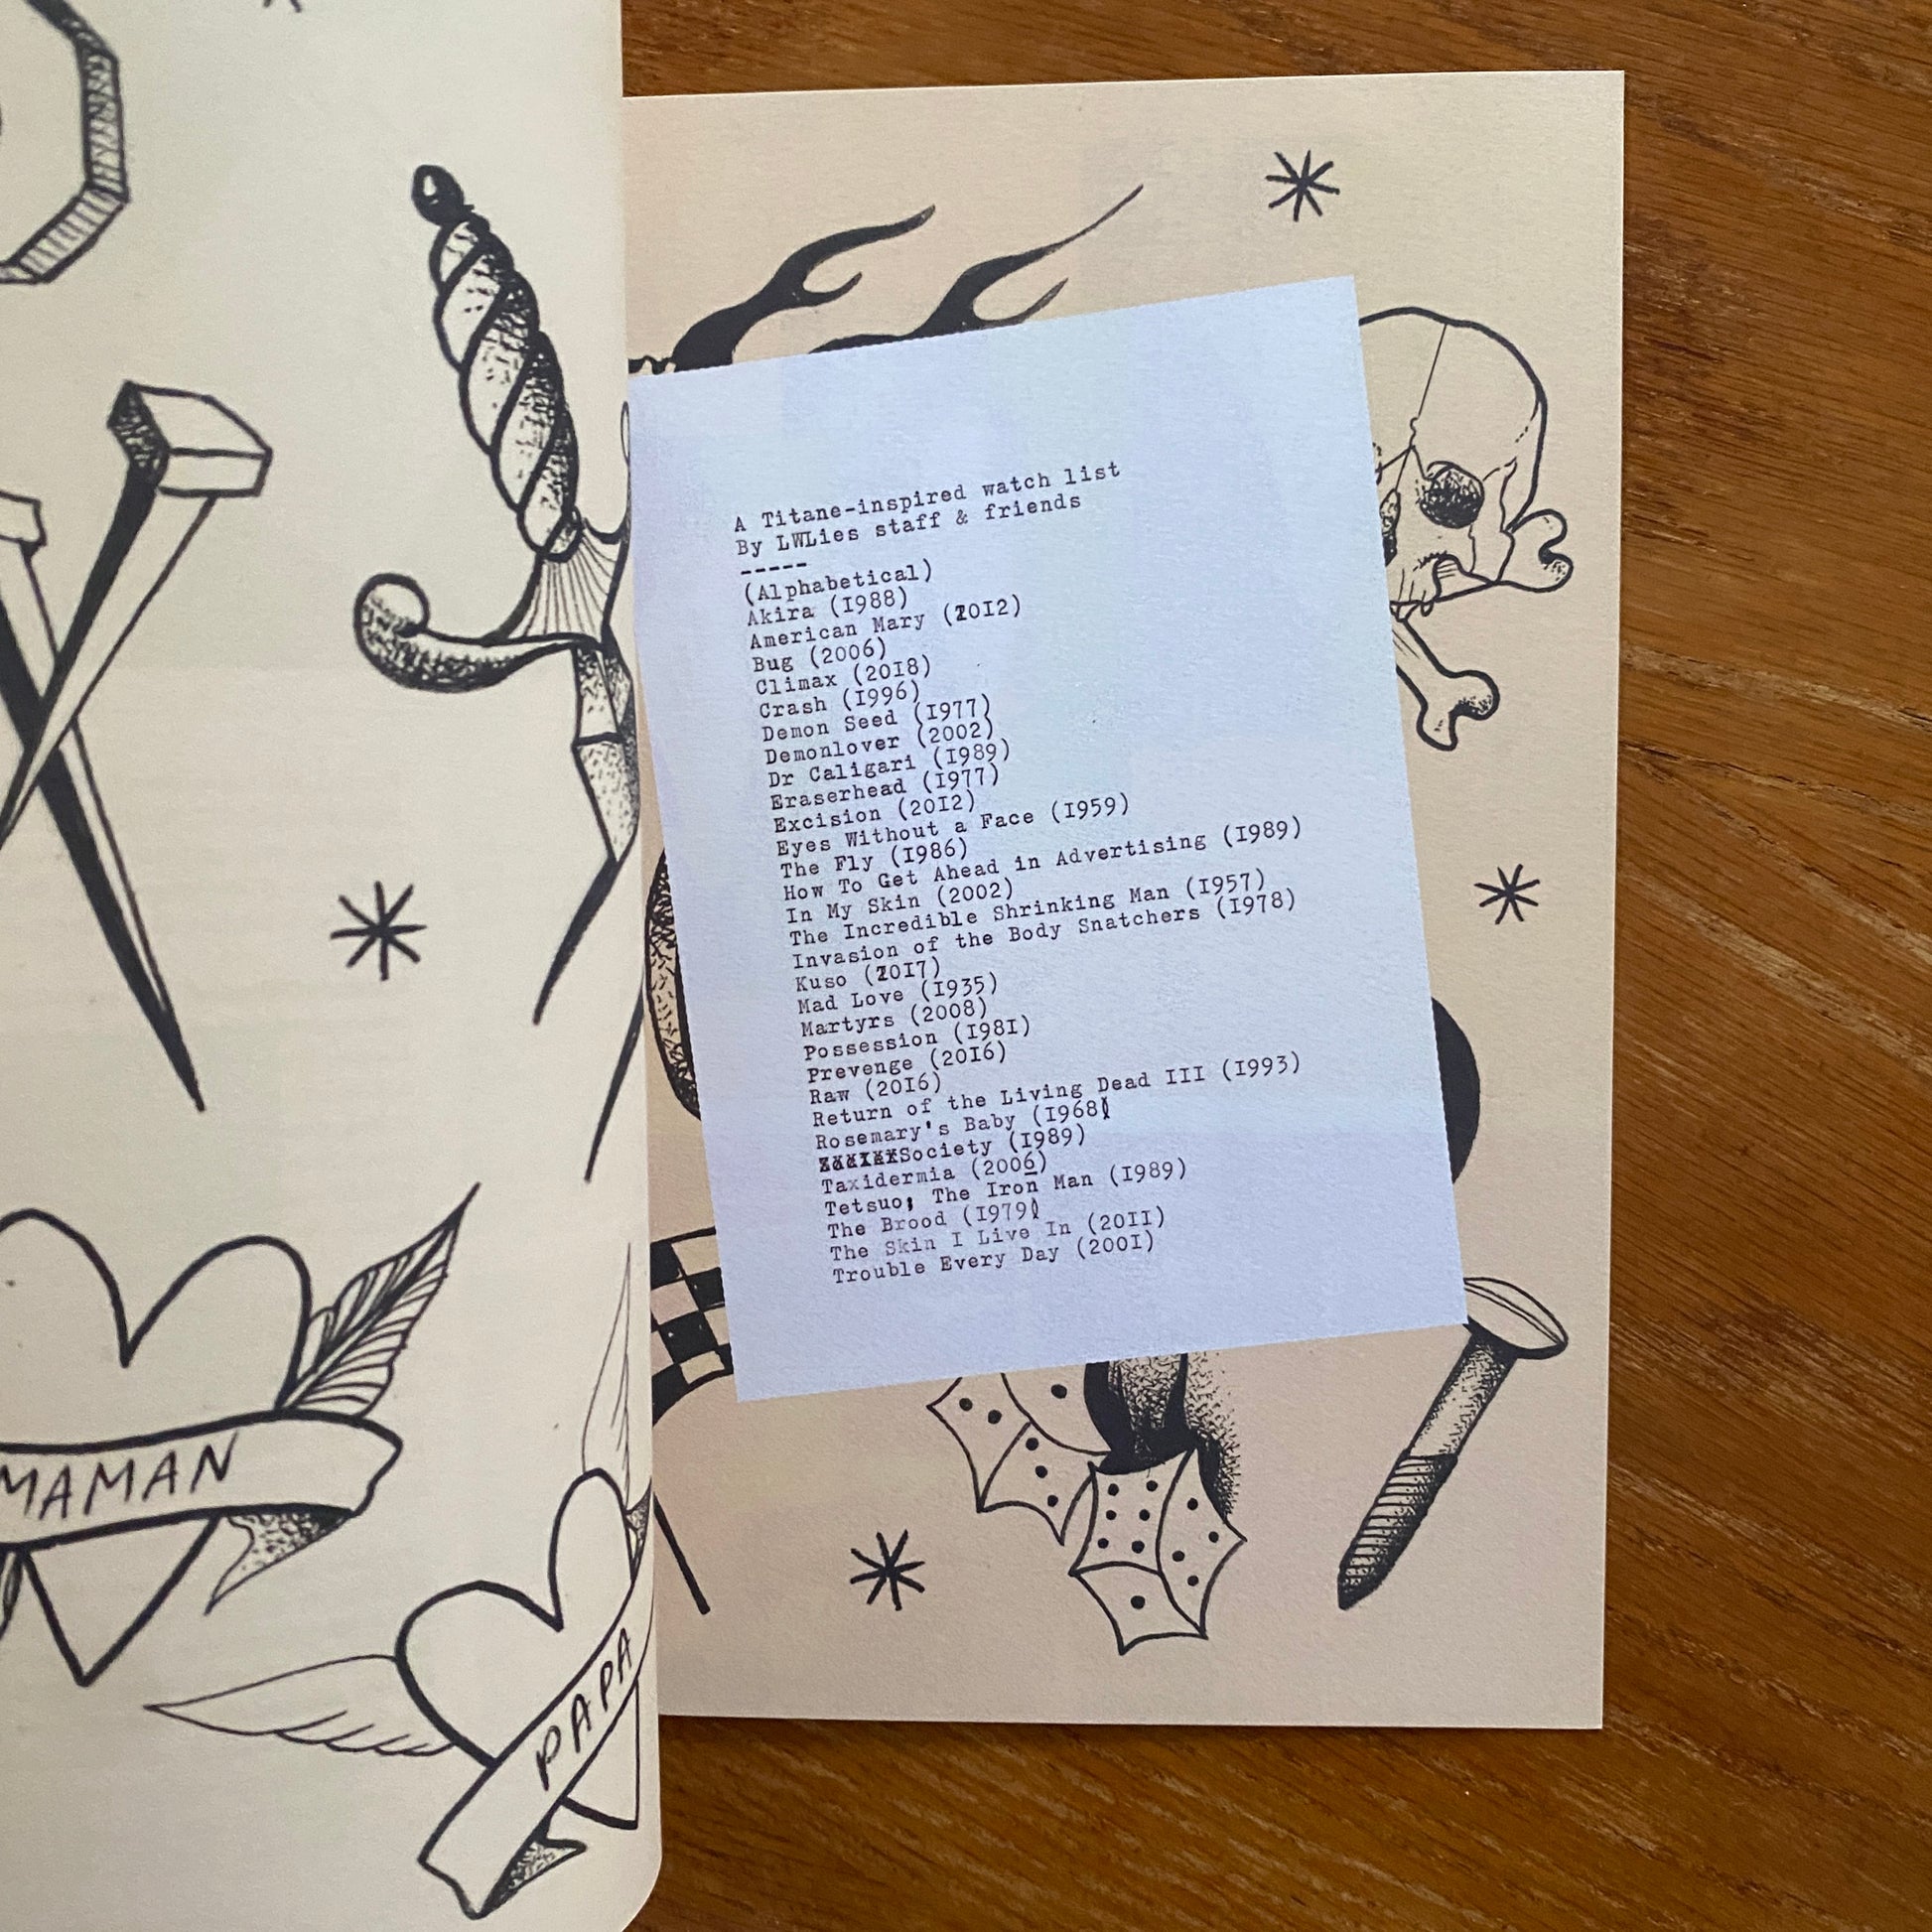 A Titane-inspired watch list
By LWLies staff & friends
-----
(Alphabetical)
Akira (1988)
American Mary (2012)
Bug (2006)
Climax (2018)
Crash (1996)
Demon Seed (1977)
Demonlover (2002)
Dr Caligari (1989)
Eraserhead (1977)
Excision (2012)
Eyes Without a Face (1959)
The Fly (1986)
How To Get Ahead in Advertising (1989)
In My Skin (2002)
The Incredible Shrinking Man (1957)
Invasion of the Body Snatchers (1978)
Kuso (2017)
Mad Love (1935)
Martyrs (2008)
Possession (1981)
Prevenge (2016)
Raw (2016)
Return of the Living Dead III (1993)
Rosemary's Baby (1968)
Society (1989)
Taxidermia (2006)
Tetsuo; The Iron Man (1989)
The Brood (1979)
The Skin I Live In (2011)
Trouble Every Day (2001)
MAMAN
PAPA